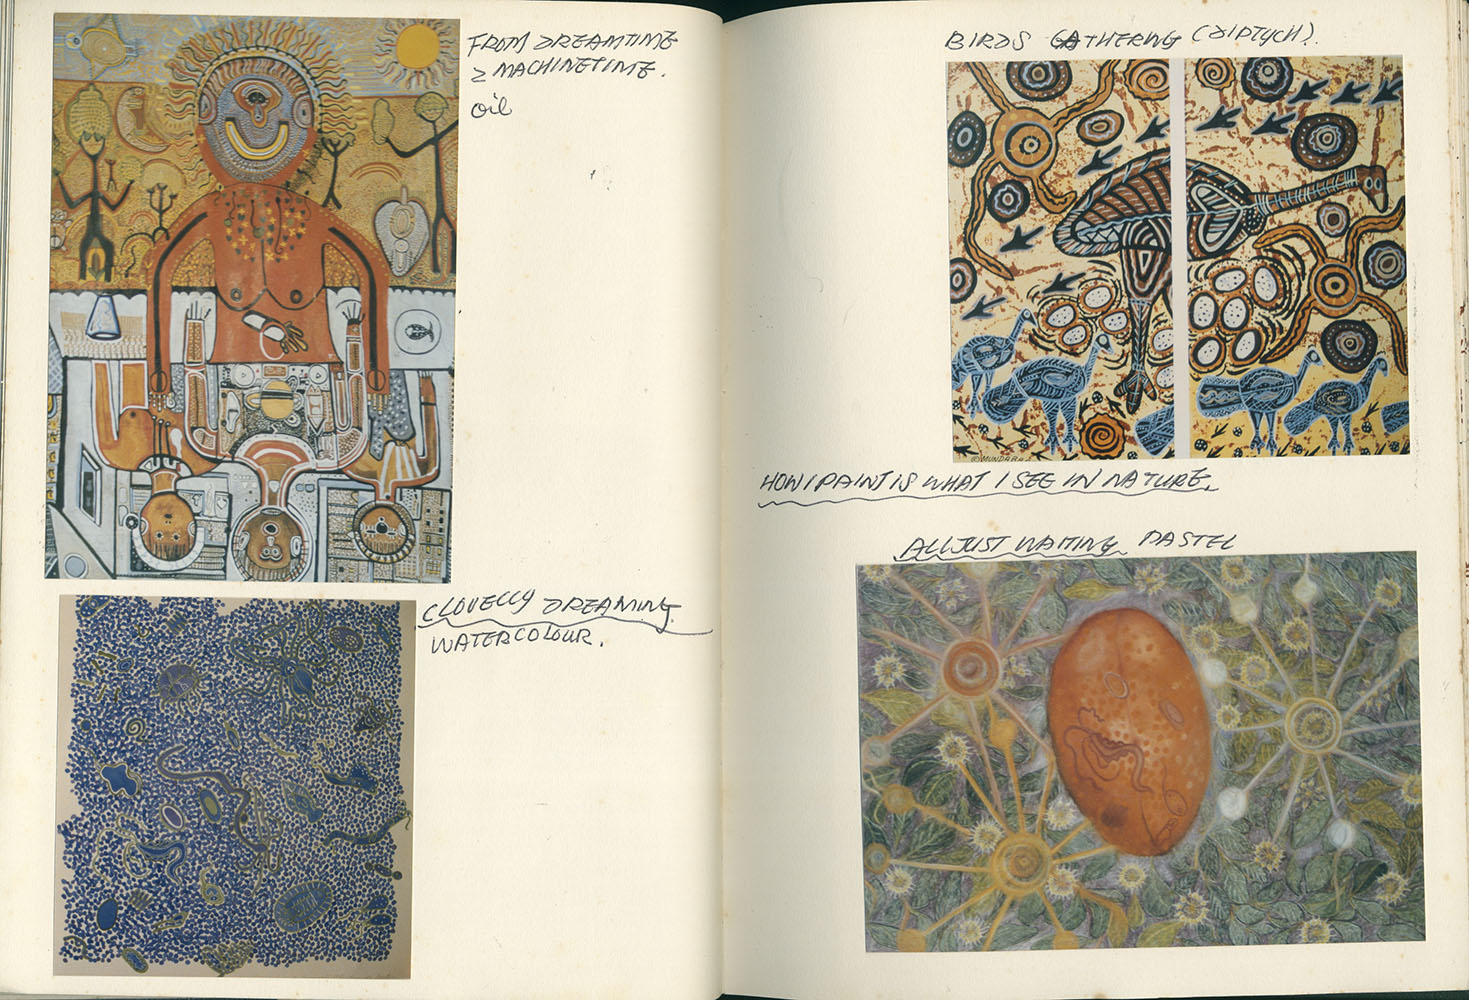 FROM DREAMTIME
2 MACHINETIME.
oil
CLOVELLY DREAMING
WATERCOLOUR.
BIRDS GATHERING (DIPTYCH).
© MUNDABAA
HOW I PAINT IS WHAT I SEE IN NATURE.
ALL JUST WAITING PASTEL